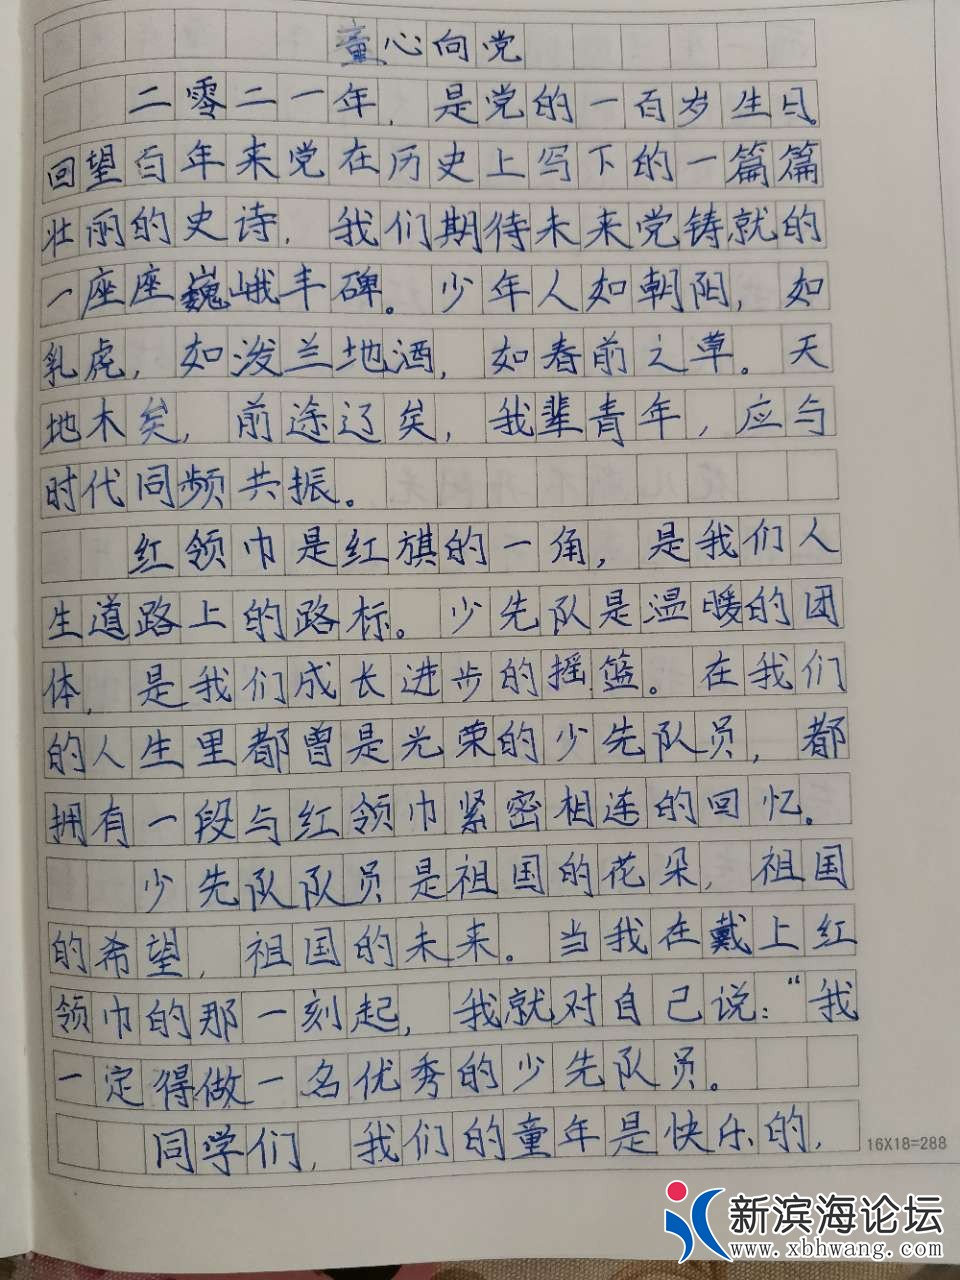 童心向党
二零二一年，是党的一百岁生日。
回望百年来党在历史上写下的一篇篇
壮丽的史诗，我们期待未来党铸就的
一座座巍峨丰碑。少年人如朝阳，如
乳虎，如泼兰地酒，如春前之草。天
地木矣，前途辽矣，我辈青年，应与
时代同频共振。
红领巾是红旗的一角，是我们人
生道路上的路标。少先队是温暖的团
体，是我们成长进步的摇篮。在我们
的人生里都曾是光荣的少先队员，都
拥有一段与红领巾紧密相连的回忆。
少先队队员是祖国的花朵，祖国
的希望，祖国的未来。当我在戴上红
领巾的那一刻起，我就对自己说：“我
一定得做一名优秀的少先队员。
同学们，我们的童年是快乐的，
16X18=288
新滨海论坛
www.xbhwang.com